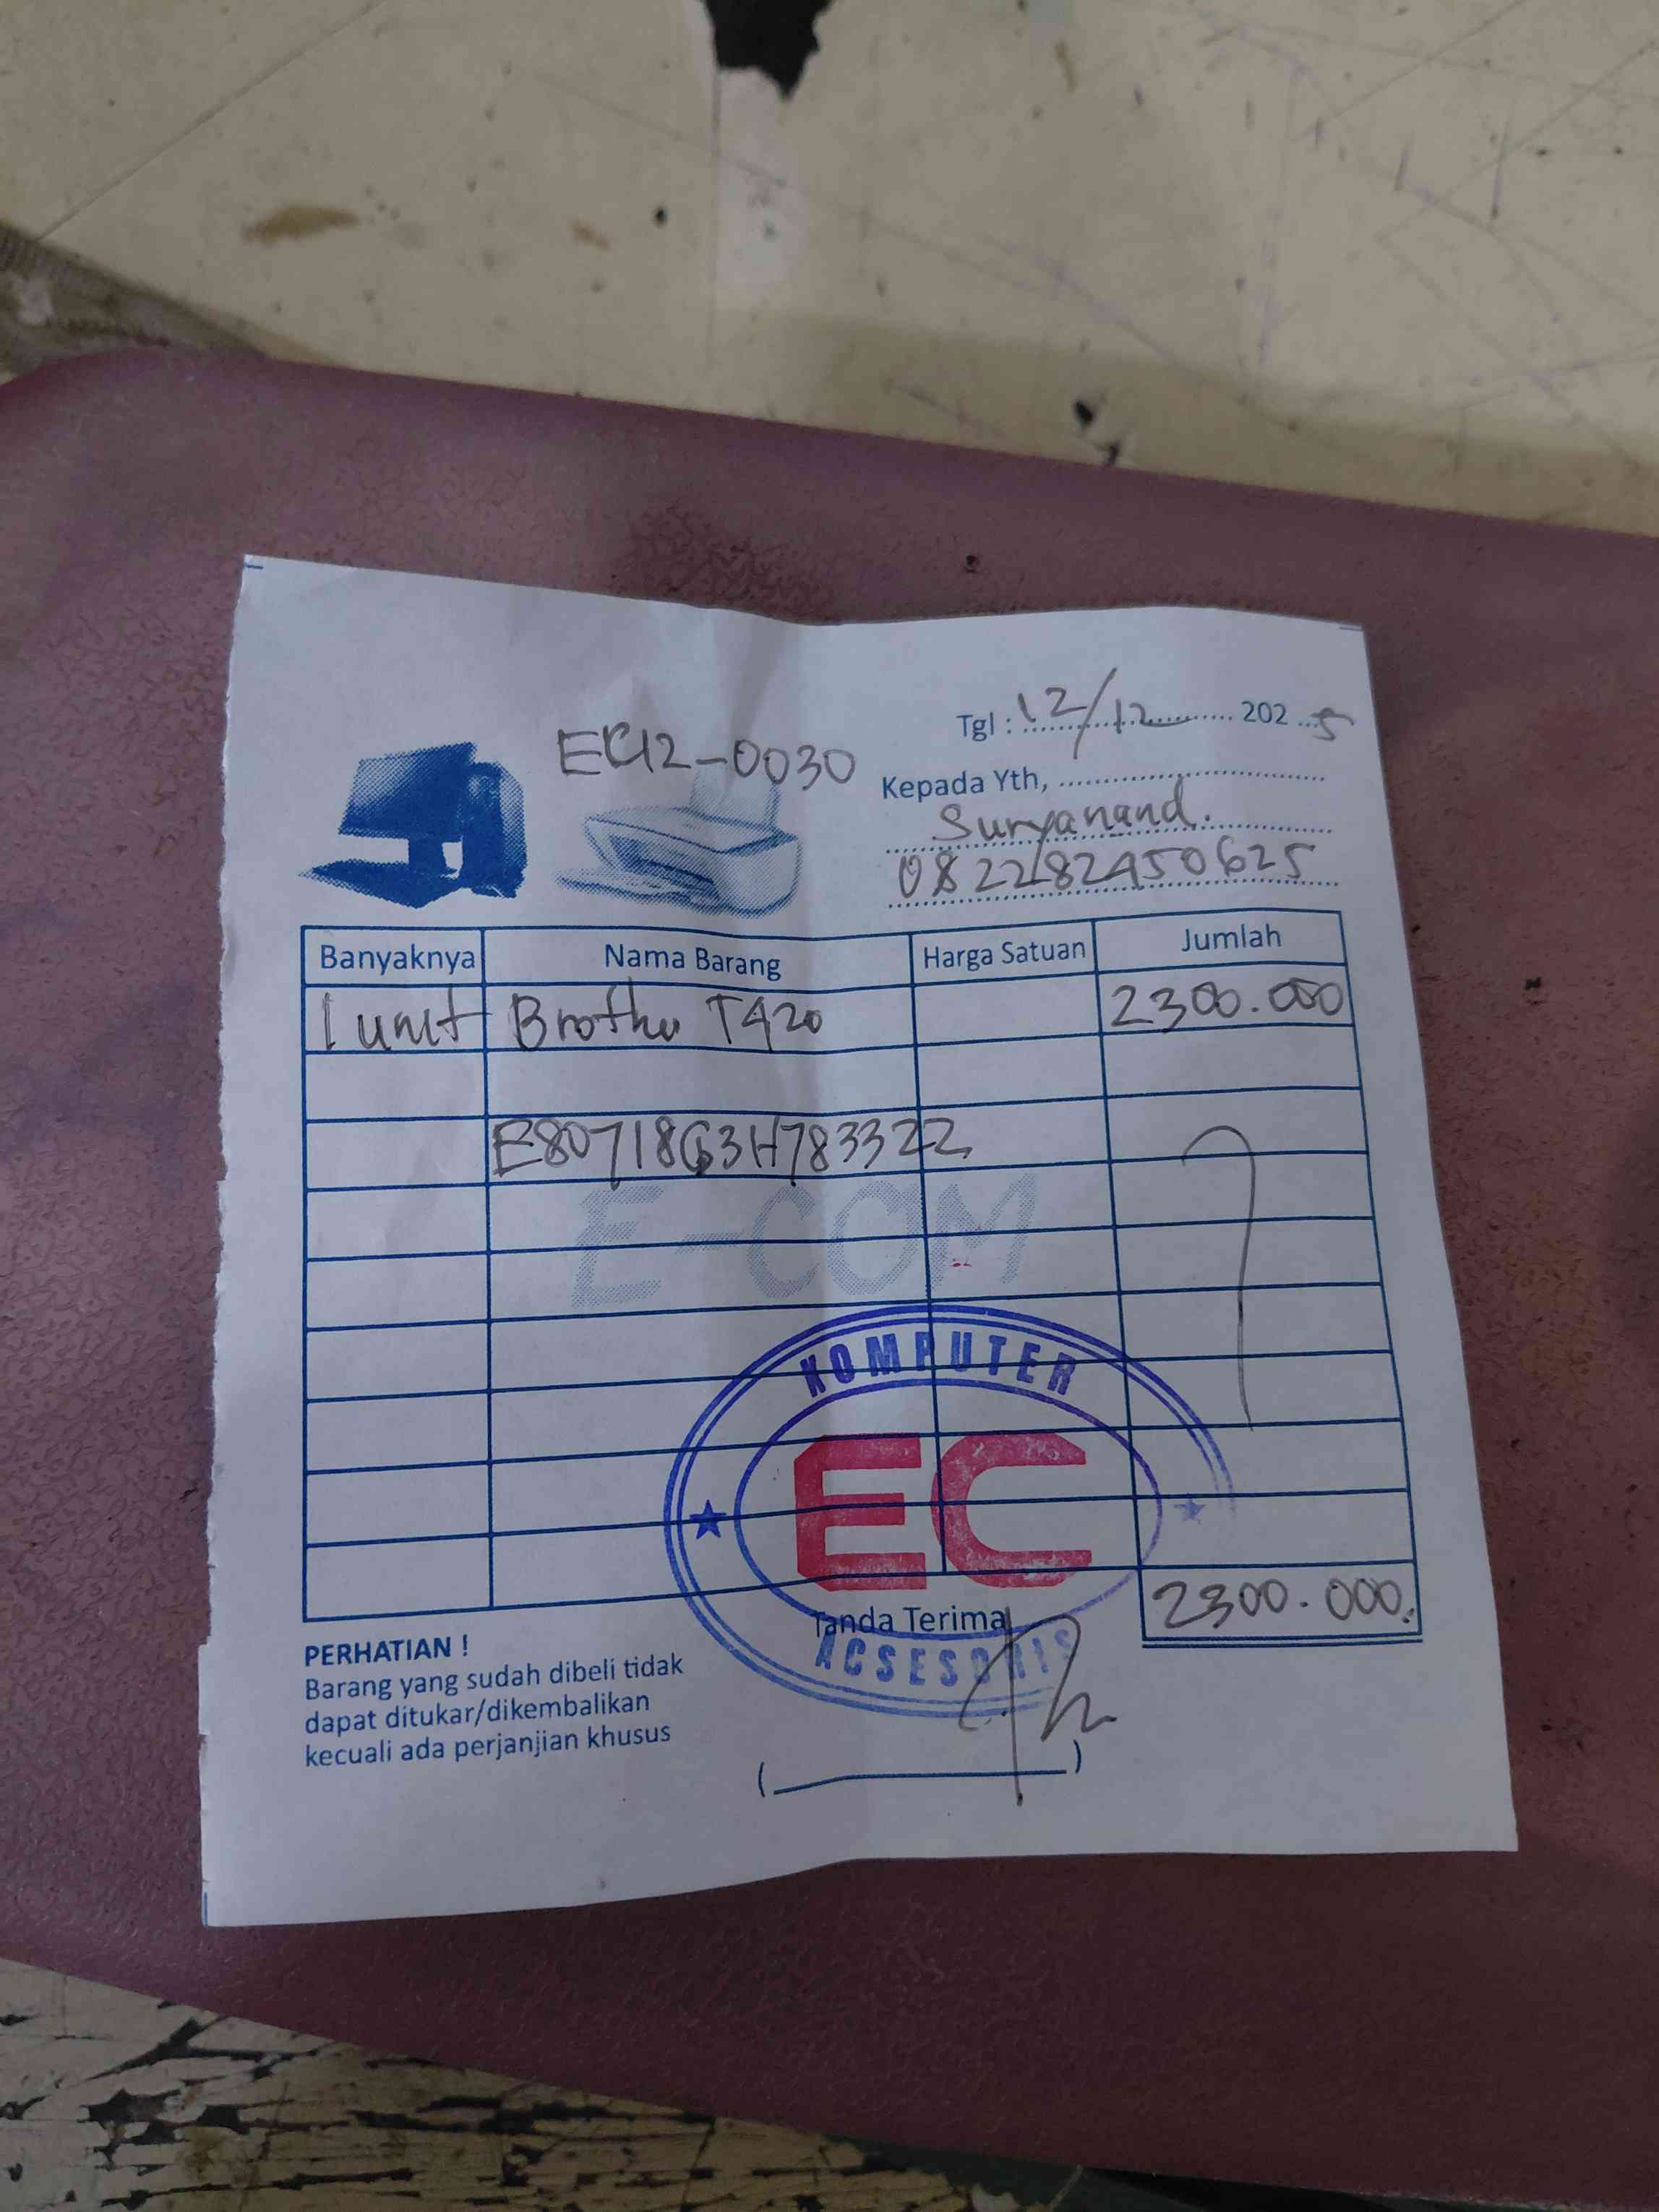 Tgl : 12/12 202 5
EC12-0030
Kepada Yth,
Suryanand.
082282450625
Banyaknya Nama Barang Harga Satuan Jumlah
1 unit Brother T420 2300.000
E80718G3H783322
E-COM
KOMPUTER
EC
ACSESORIS
2300.000.
Tanda Terima
PERHATIAN !
Barang yang sudah dibeli tidak
dapat ditukar/dikembalikan
kecuali ada perjanjian khusus